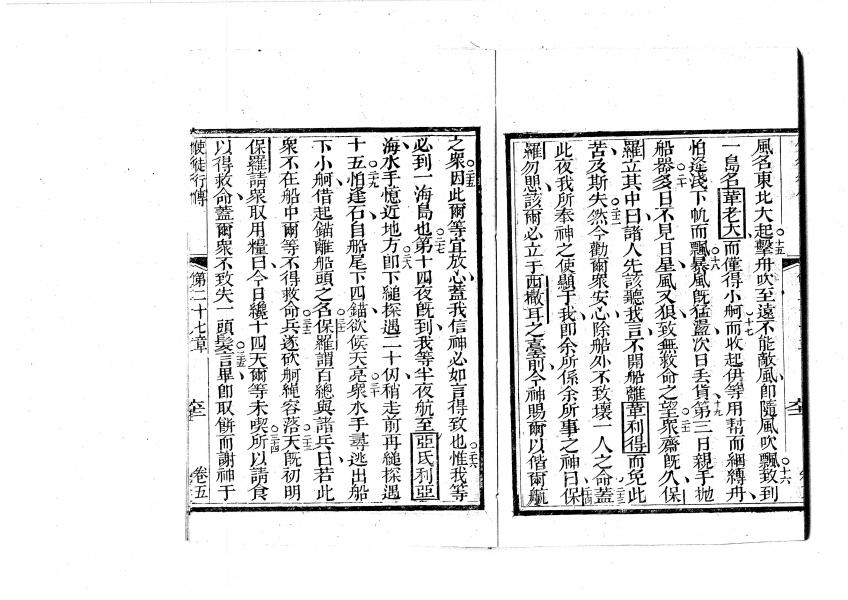 風名東北大起擊舟吹至遠不能敵風卽隨風吹飄致到
一島名葦老大而僅得小舸而收起伊等用幫而綑縛舟
怕逢淺下帆而飄暴風旣猛盪次日丟貨第三日親手拋
船器多日不見日星風又狠致無救命之望衆齋旣久保
羅立其中曰諸人先該聽我言不開船離葦利得而免此
苦及斯失然今勸爾衆安心除船外不致壞一人之命蓋
此夜我所奉神之使顯于我卽余所係余所事之神曰保
羅勿懇該爾必立于西撒耳之臺前今神賜爾以偕爾航
之衆因此爾等宜放心蓋我信神必如言得致也惟我等
必到一海島也第十四夜旣到我等半夜航至亞氏利亞
海水手憶近地方卽下縋探遇二十仞稍走前再縋探遇
十五怕逢石自船尾下四錨欲候天亮衆水手尋逃出船
下小舸借起錨離船頭之名保羅謂百總與諸兵曰若此
衆不在船中爾等不得救命兵遂砍舸繩容落天旣初明
保羅請衆取用糧曰今日纔十四天爾等未喫所以請食
以得救命蓋爾衆不致失一頭髮言畢卽取餅而謝神于
使徒行傳 第二十七章 卷五